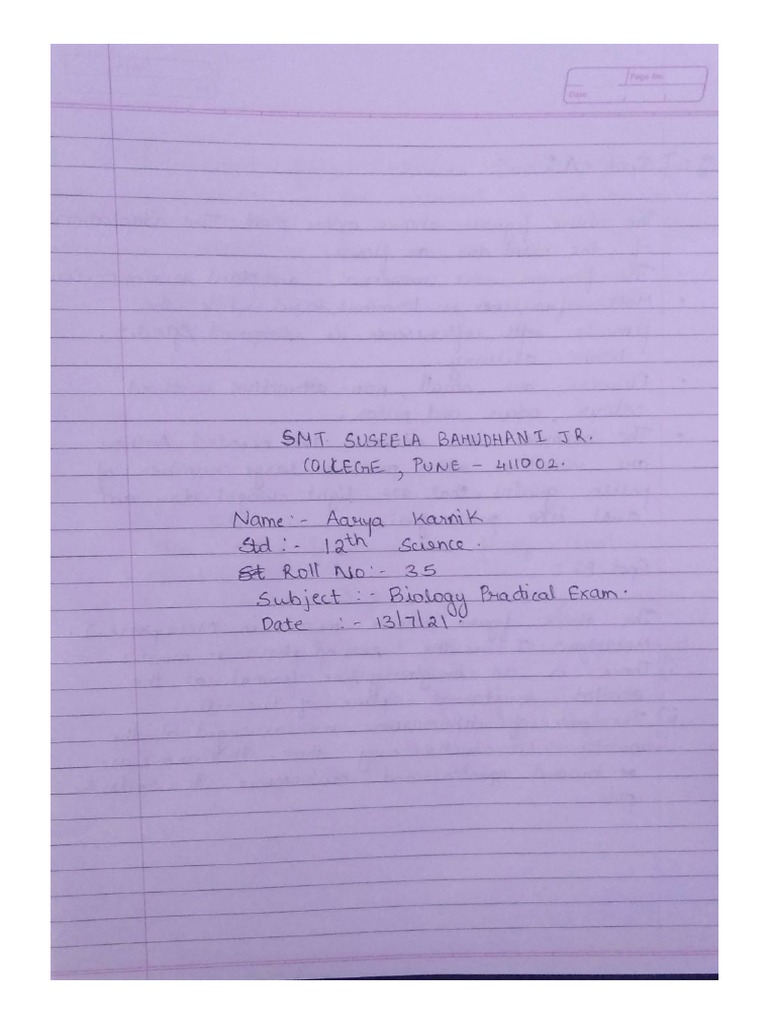 Page No.
Date
SMT SUSEELA BAHUDHANI JR.
COLLEGE, PUNE - 411002.
Name :- Aarya Karnik
Std :- 12th Science.
St Roll No :- 35
Subject :- Biology Practical Exam.
Date :- 13/7/21.